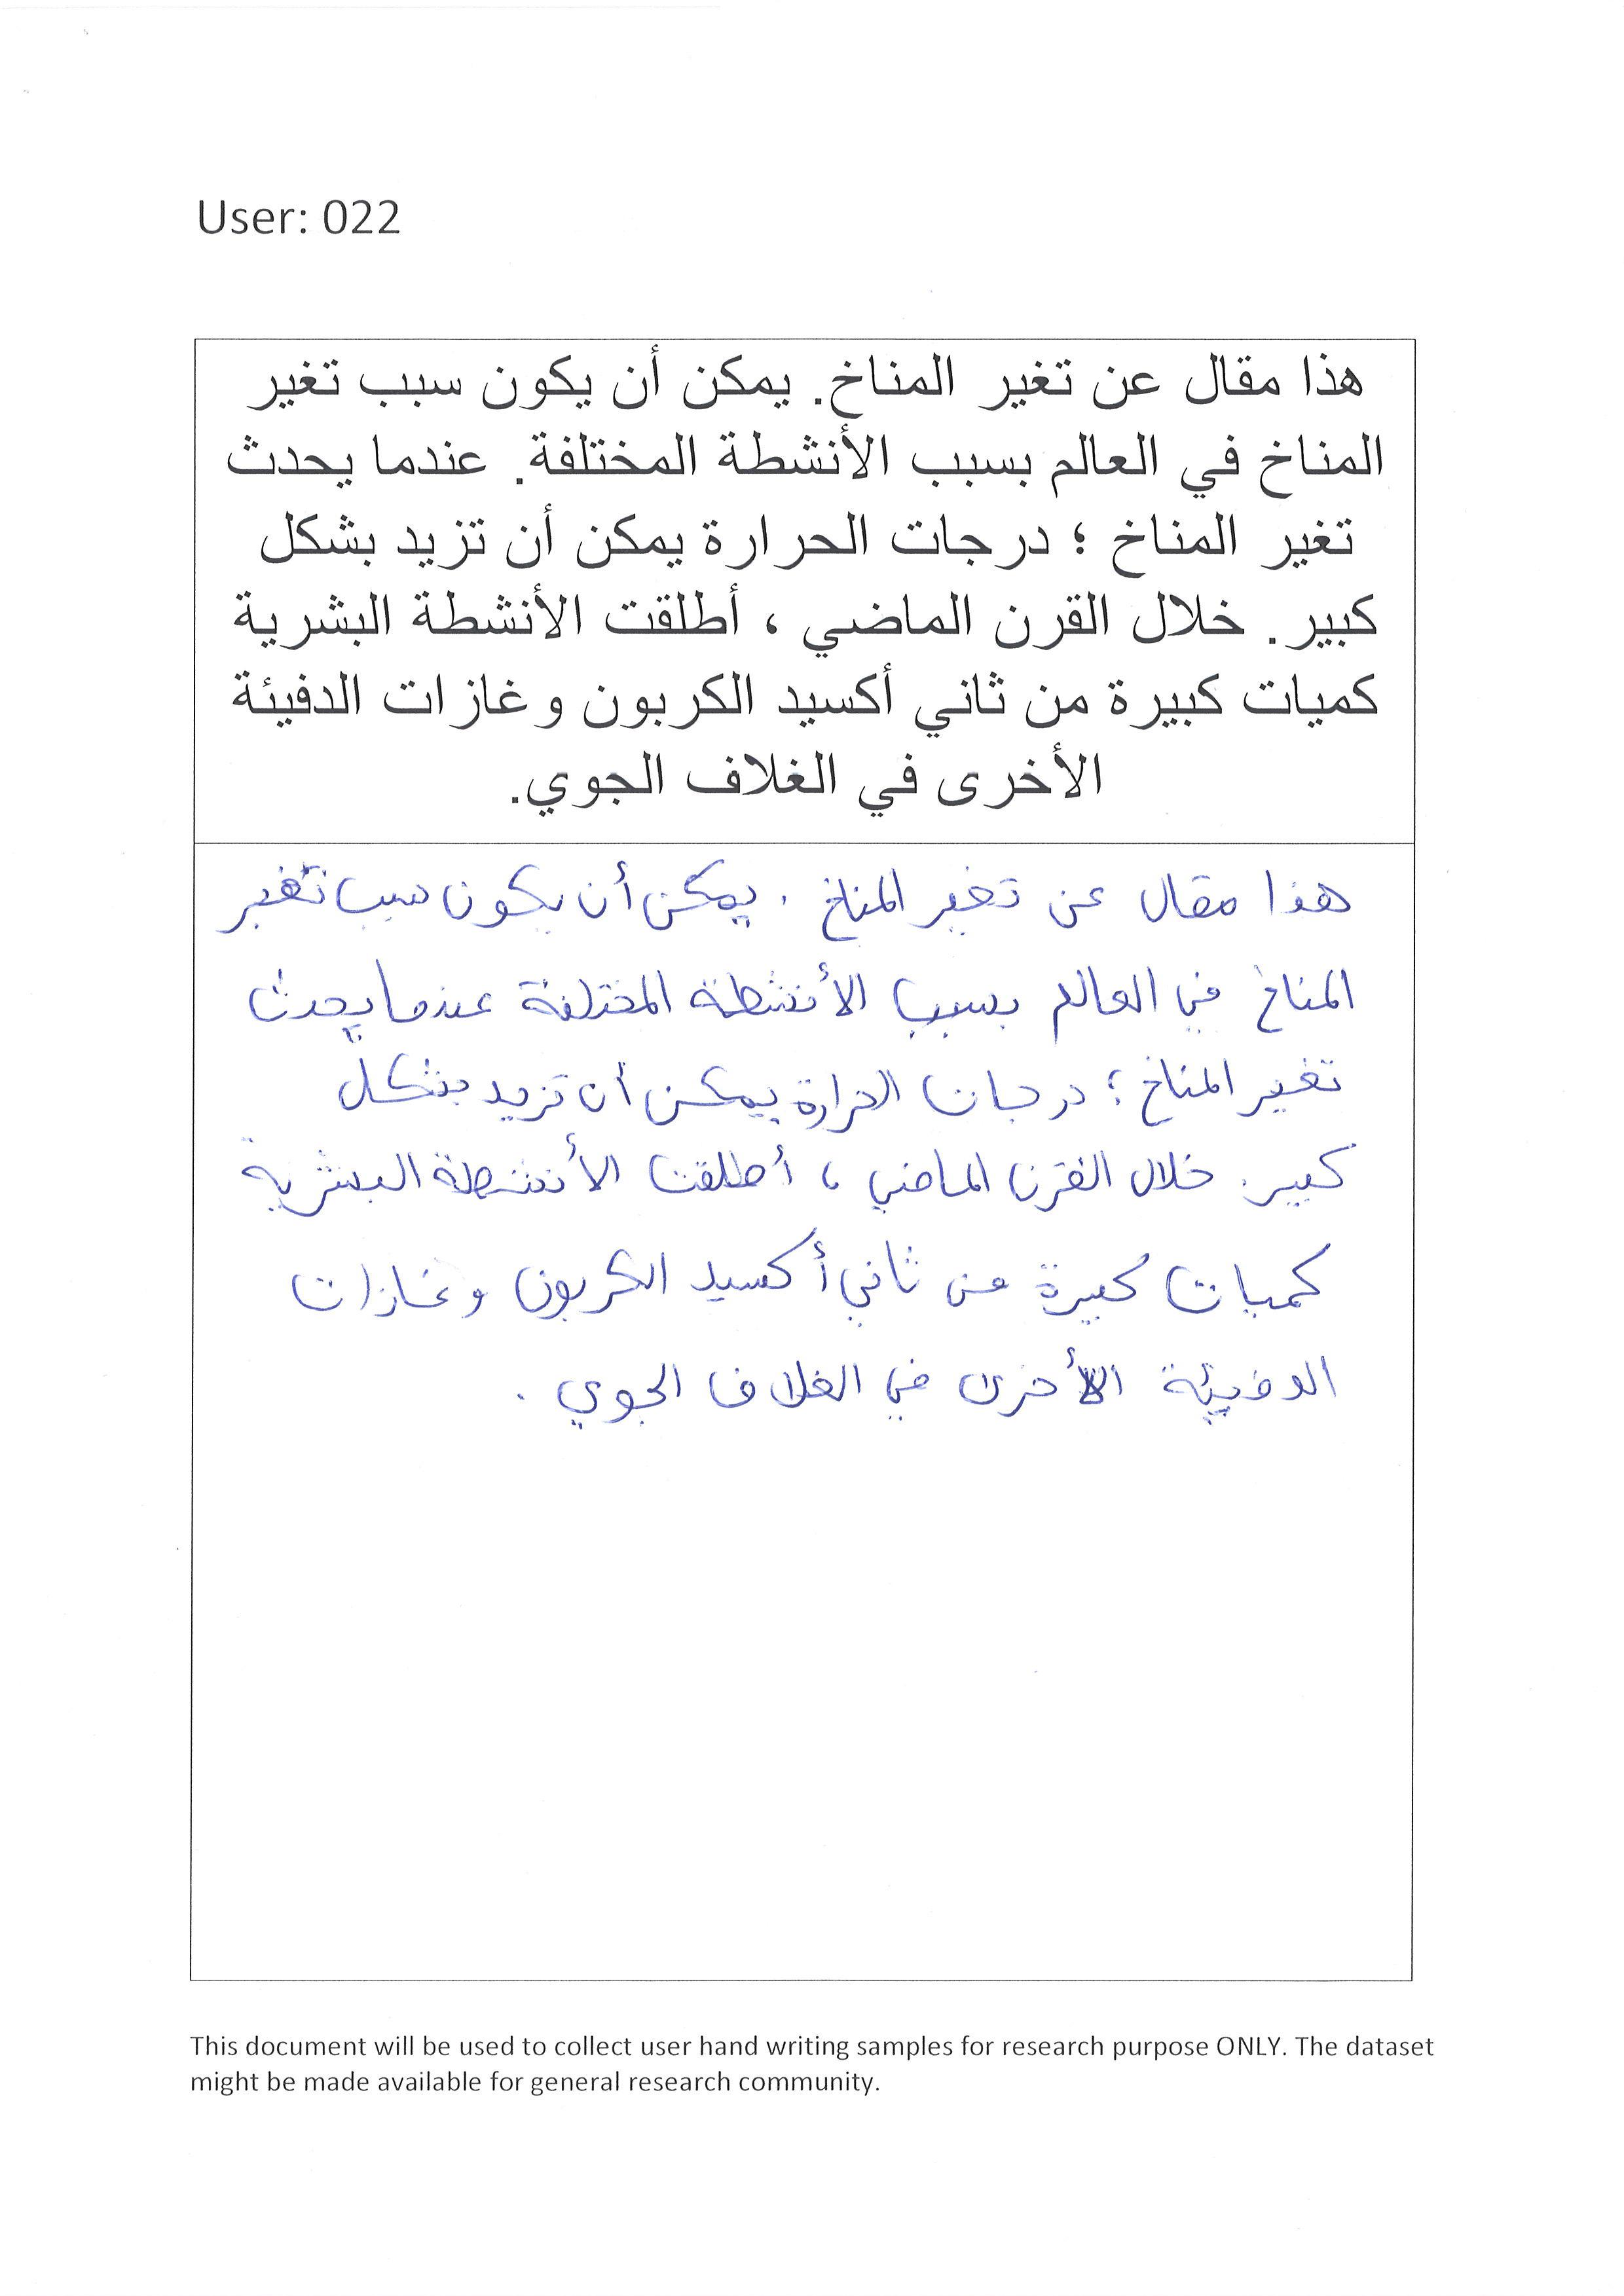 User: 022
هذا مقال عن تغير المناخ. يمكن أن يكون سبب تغير
المناخ في العالم بسبب الأنشطة المختلفة. عندما يحدث
تغير المناخ ؛ درجات الحرارة يمكن أن تزيد بشكل
كبير. خلال القرن الماضي ، أطلقت الأنشطة البشرية
كميات كبيرة من ثاني أكسيد الكربون وغازات الدفيئة
الأخرى في الغلاف الجوي.
هذا مقال عن تغير المناخ . يمكن أن يكون سبب تغير
المناخ في العالم بسبب الأنشطة المختلفة عندما يحدث
تغير المناخ ؛ درجات الحرارة يمكن أن تزيد بشكل
كبير. خلال القرن الماضي ، أطلقت الأنشطة البشرية
كميات كبيرة من ثاني أكسيد الكربون وغازات
الدفيئة الأخرى في الغلاف الجوي .
This document will be used to collect user hand writing samples for research purpose ONLY. The dataset
might be made available for general research community.